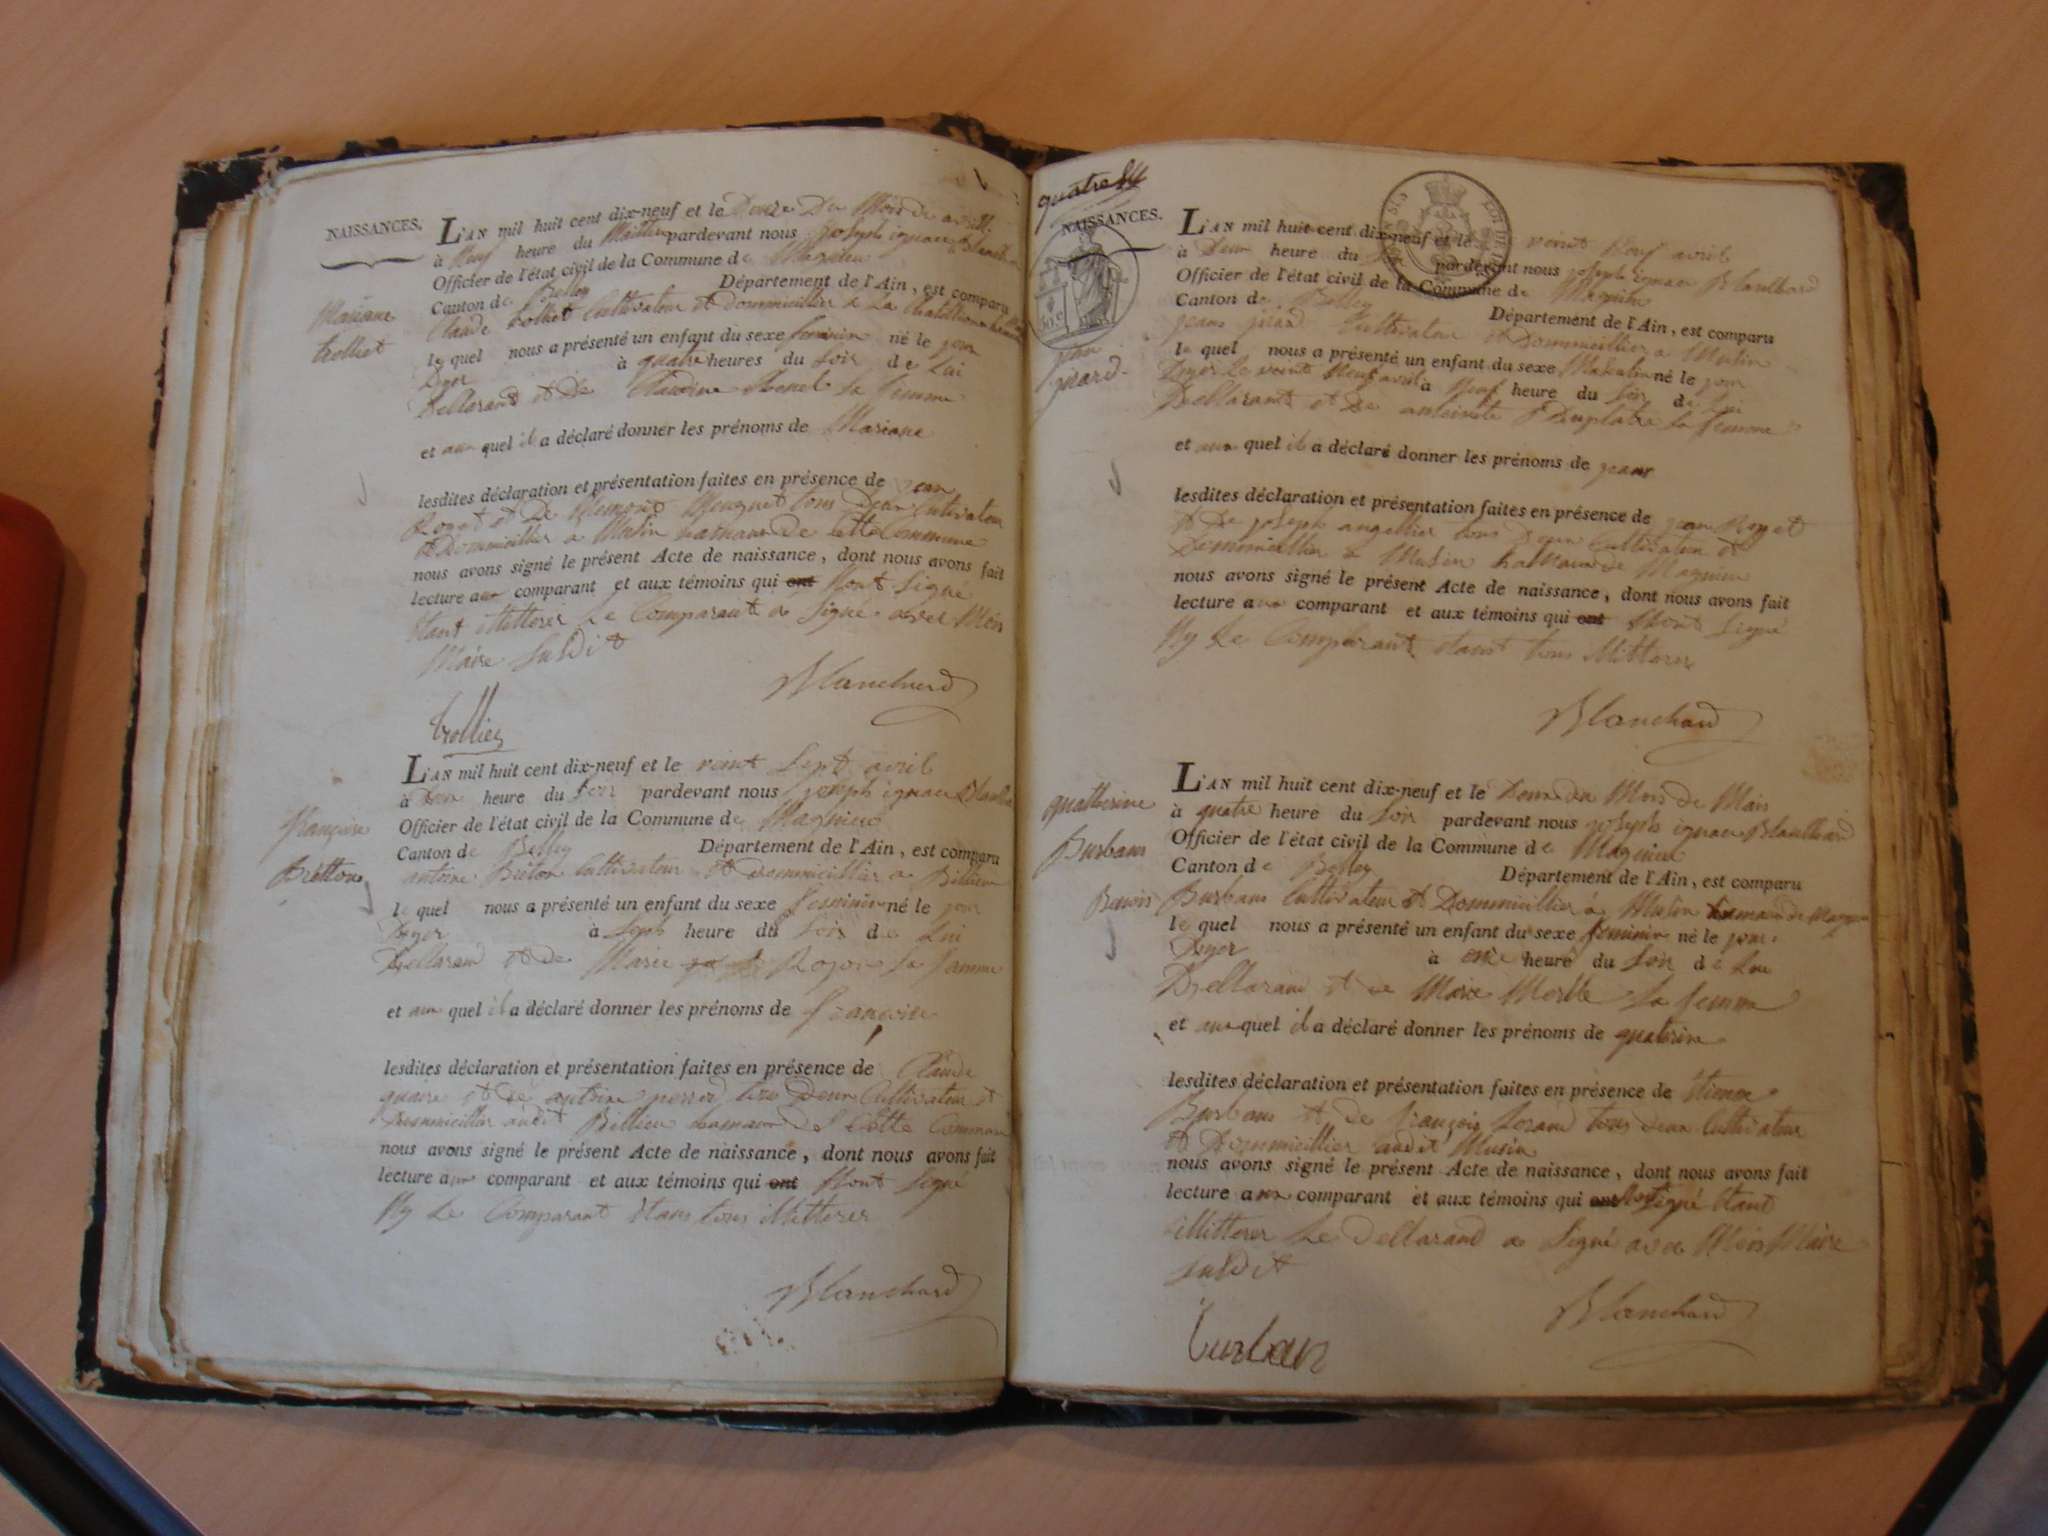 NAISSANCES.
L'AN mil huit cent dix-neuf et le Douze Du Mois de avril
à Neuf heure du Mattin pardevant nous joseph ignace Blanchard
Officier de l'état civil de la Commune de Magnieu
Canton de Belley Département de l'Ain, est comparu
Mariane
trolliet
Claude trolliet Cultivateur et Dommicillier a La
le quel nous a présenté un enfant du sexe feminin né le jour
Dyer à quatre heures du Soir de Lui
Dellarant et De Claudine La femme
et au quel il a déclaré donner les prénoms de Mariane
lesdites déclaration et présentation faites en présence de jean
Royet et De tous Deux Cultivateur
et Dommicillier a Musin hamaux de Cette Commune
nous avons signé le présent Acte de naissance, dont nous avons fait
lecture au comparant et aux témoins qui ont Nont Signé
Etant illitterer Le Comparant a Signé avec Mois
Maire Susdit
Blanchard
trolliet
L'AN mil huit cent dix-neuf et le veint Sept avril
à heure du Soir pardevant nous joseph ignace Blanchard
Officier de l'état civil de la Commune de Magnieu
Canton de Belley Département de l'Ain, est comparu
françoise
Bretton
antoine Breton Cultivateur et Dommicillier a Billieu
le quel nous a présenté un enfant du sexe feminin né le jour
Dyer à Sept heure du Soir de Lui
Dellarand et de Marie La famme
et au quel il a déclaré donner les prénoms de françoise
lesdites déclaration et présentation faites en présence de Claude
et de antoine perrod tous Deux Cultivateur et
Dommicillier audit Billieu hamaux de Cette Commune
nous avons signé le présent Acte de naissance, dont nous avons fait
lecture au comparant et aux témoins qui ont Nont Signé
Ny Le Comparant Etans tous illitterer
Blanchard
quatre
NAISSANCES.
L'AN mil huit cent dix-neuf et le veint Neuf avril
à Deux heure du pardevant nous joseph ignace Blanchard
Officier de l'état civil de la Commune de Magnieu
Canton de Belley Département de l'Ain, est comparu
jean
jirard
jeans jirard Cultivateur et Dommicillier a Musin
le quel nous a présenté un enfant du sexe Maxculin né le jour
Dyer Le veint Neuf avril à Neuf heure du Soir de Lui
Dellarant et De anteinete Duplatre La femme
et au quel il a déclaré donner les prénoms de jeans
lesdites déclaration et présentation faites en présence de jean Royet
et De joseph angellier tous Deux Cultivateur et
Dommicillier a Musin hamaux de Magnieu
nous avons signé le présent Acte de naissance, dont nous avons fait
lecture au comparant et aux témoins qui ont Nont Signé
Ny Le Comparant etant tous illitterer
Blanchard
L'AN mil huit cent dix-neuf et le Deux du Mois de Mais
à quatre heure du Soir pardevant nous joseph ignace Blanchard
Officier de l'état civil de la Commune de Magnieu
Canton de Belley Département de l'Ain, est comparu
quatherine
Burbans
Benois Burbans Cultivateur et Dommicillier a Musin hamaux de Magnieu
le quel nous a présenté un enfant du sexe feminin né le jour
Dyer à onze heure du Soir de Lui
Dellarand et de Marie Merlle La femme
et au quel il a déclaré donner les prénoms de quatorine
lesdites déclaration et présentation faites en présence de Etienne
Burbans et de françois tous deux Cultivateur
et Dommicillier audit Musin
nous avons signé le présent Acte de naissance, dont nous avons fait
lecture aux comparant et aux témoins qui ont Nont Signé Etant
illitterer Le Dellarand a Signé avec Mois Maire
susdit
Blanchard
Curban